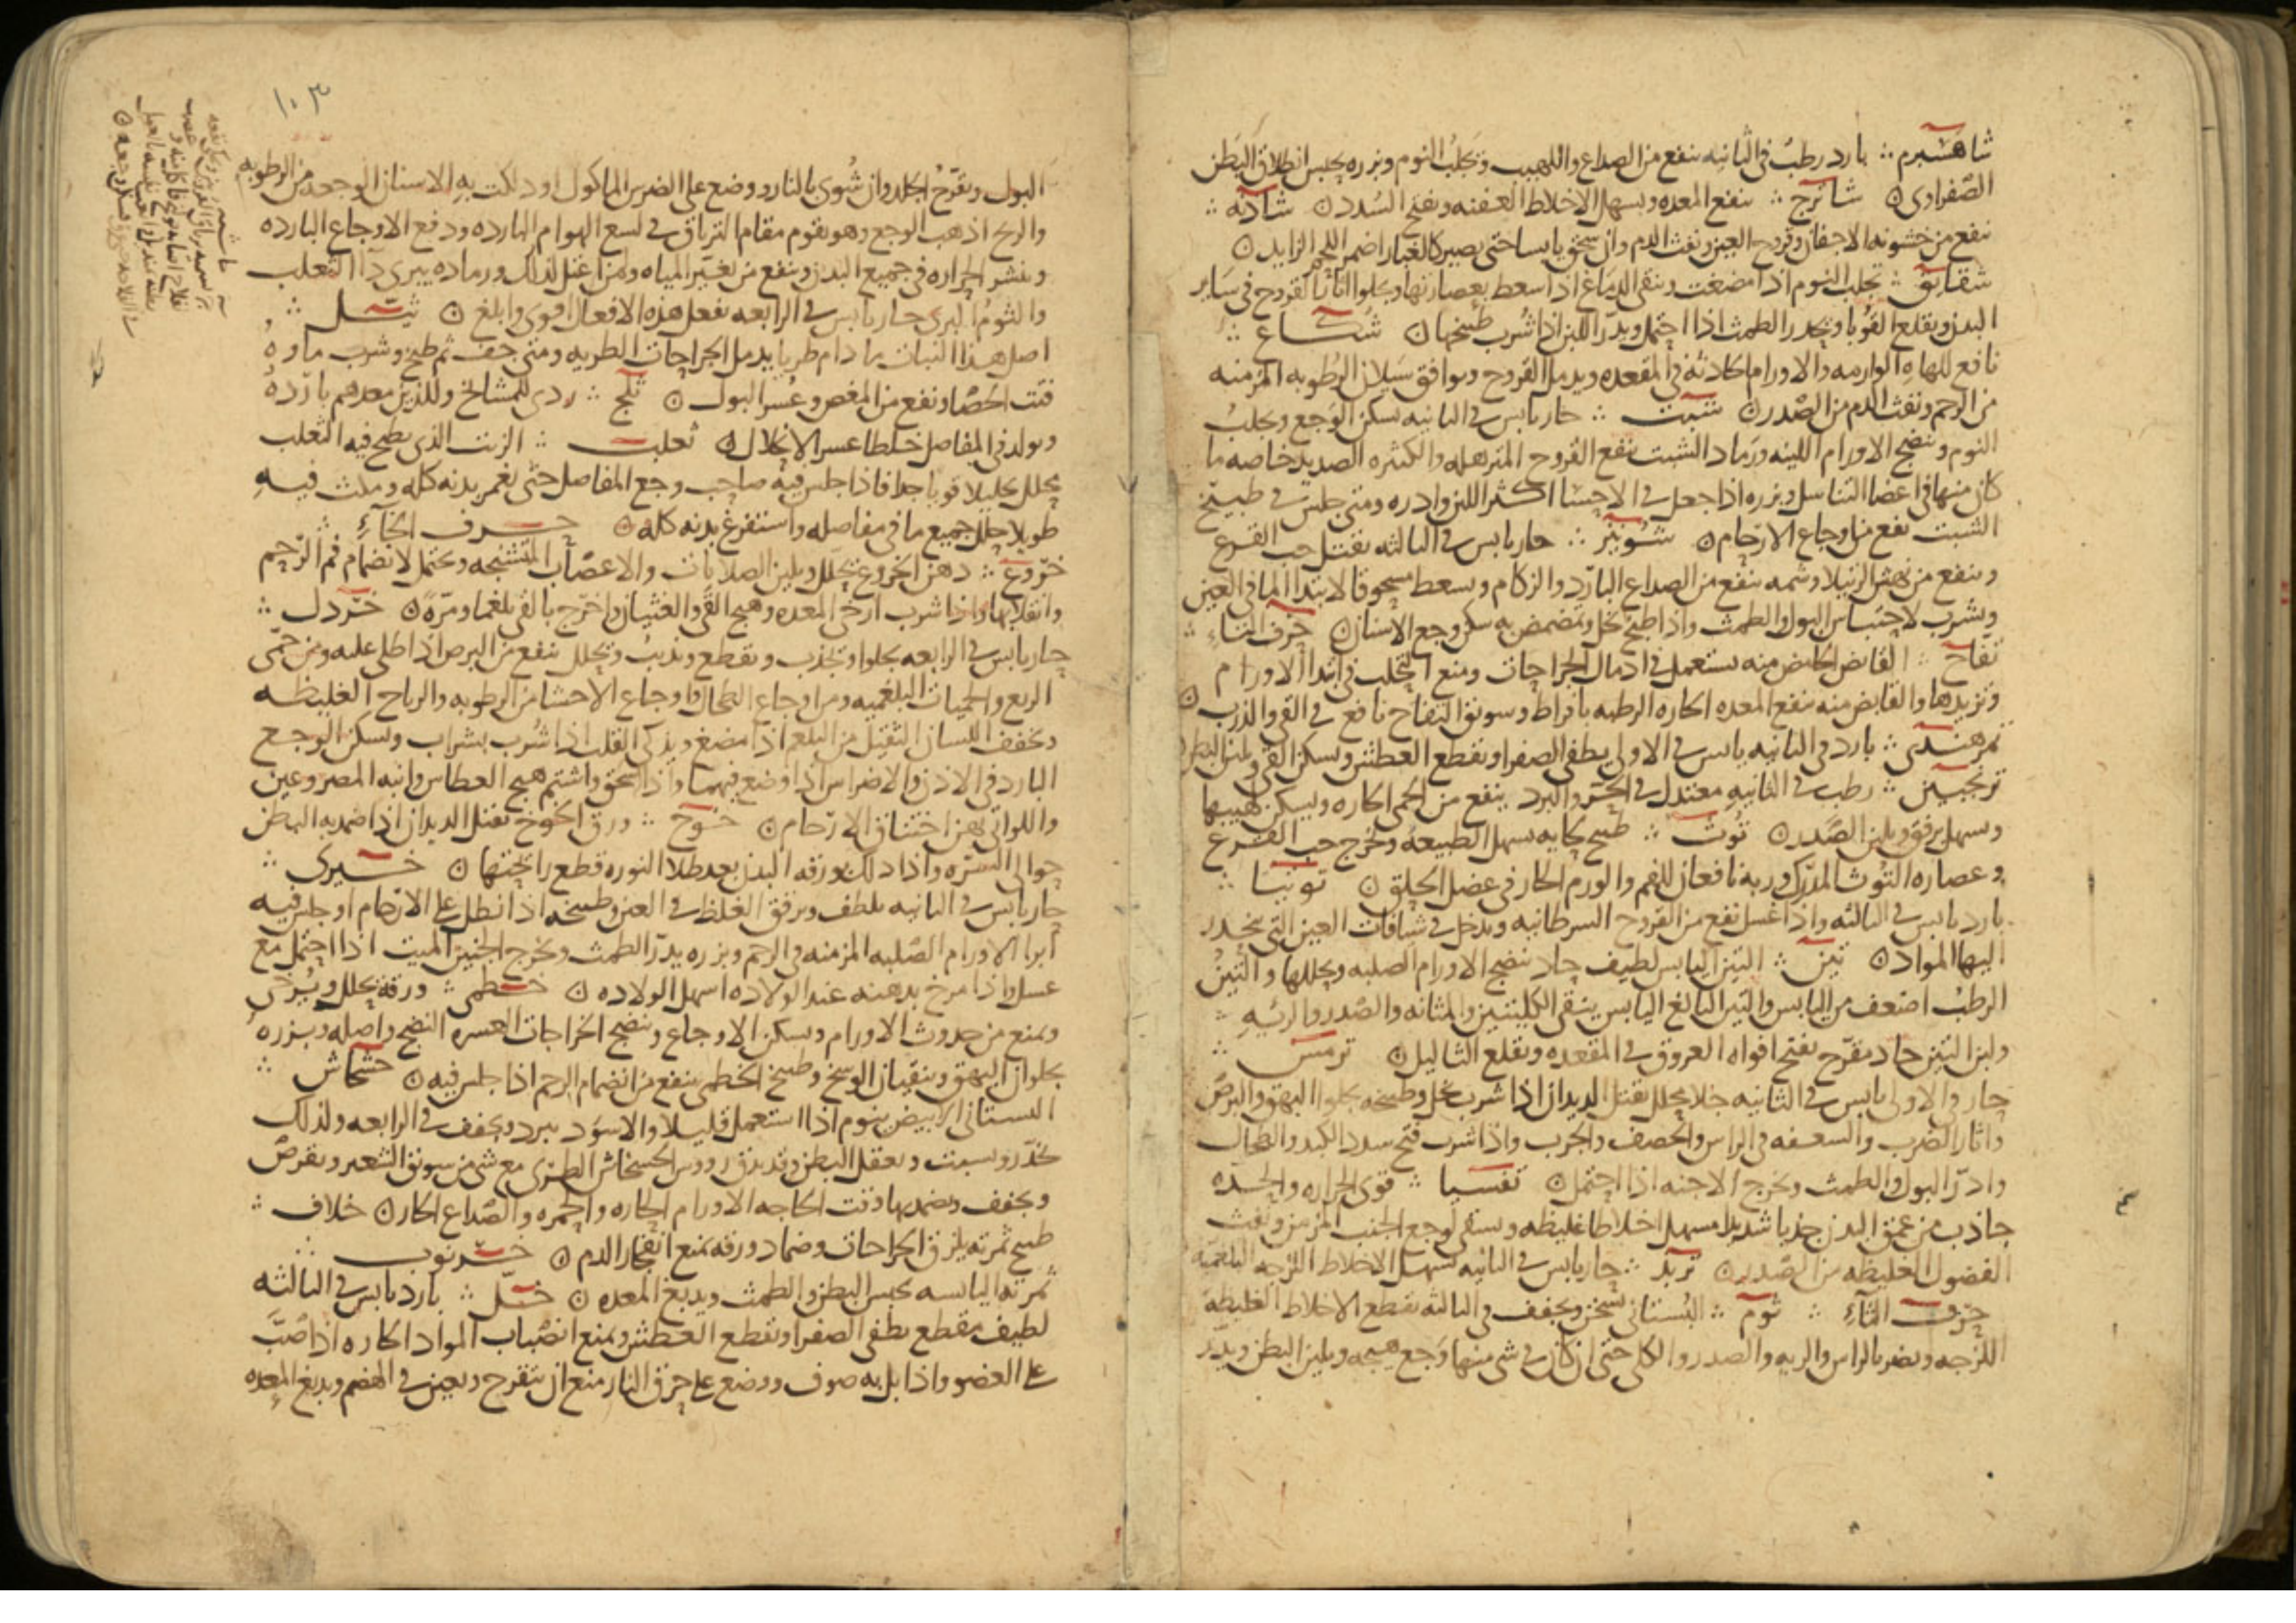 شاهسبرم ؞ بارد رطب في الثانيه ينفع من الصداع واللهيب ويجلب النوم وبزره يحبس انطلاق البطن
الصفراوي ۞ شاترج ؞ ينفع المعده ويسهل الاخلاط العفنه ويفتح السدد ۞ شادنه ؞
ينفع من خشونه الاجفان وقروح العين ونفث الدم وان سحق يابسا حتى يصير كالغبار اضمر اللحم الزايد ۞
شقايق ؞ يجلب النوم اذا مضغت وينقي الدماغ اذا سعط بعصارتها ويجلوا اثار القروح في ساير
البدن ويقلع القوبا ويحدر الطمث اذا احتمل ويدر اللبن اذا شرب طبيخها ۞ شكاع ؞
نافع للهاه الوارمه والاورام الحادثه في المقعده ويدمل القروح ويوافق سيلان الرطوبه المزمنه
من الرحم ونفث الدم من الصدر ۞ شبت ؞ حار يابس في الثانيه يسكن الوجع ويجلب
النوم وينضج الاورام اللينه ورماد الشبت ينفع القروح المترهله والكثيره الصديد خاصه ما
كان منها في اعضا التناسل وبزره اذا جعل في الاحسا اكثر اللبن وادره ومتى جلس في طبيخ
الشبت نفع من اوجاع الارحام ۞ شونيز ؞ حار يابس في الثالثه يقتل حب القرع
وينفع من نهش الرتيلا وشمه ينفع من الصداع البارد والزكام ويسعط مسحوقا لابتدا الما في العين
ويشرب لاحتباس البول والطمث واذا طبخ بخل وتمضمض به سكن وجع الاسنان ۞ حرف التاء ؞
تفاح ؞ القابض الحامض منه يستعمل في ادمال الجراحات ومنع التحلب في ابتدا الاورام
وتزيدها والقابض منه ينفع المعده الحاره الرطبه بافراط وسويق التفاح نافع في القي والذرب ۞
تمر هندي ؞ بارد في الثانيه يابس في الاولى يطفي الصفرا ويقطع العطش ويسكن القي ويلين البطن
ترنجبين ؞ رطب في الثانيه معتدل في الحر والبرد ينفع من الحمى الحاره ويسكن لهيبها
ويسهل برفق ويلين الصدر ۞ توت ؞ طبيخ لحايه يسهل الطبيعه ويخرج حب القرع
وعصاره التوث المدرك وربه نافعان للفم والورم الحار في عضل الحلق ۞ توتيا ؞
بارد يابس في الثالثه واذا غسل نفع من القروح السرطانيه ويدخل في شيافات العين التي ينحدر
اليها المواد ۞ تين ؞ التين اليابس لطيف حاد ينضج الاورام الصلبه ويحللها والتين
الرطب اضعف من اليابس والتين البالغ اليابس ينقي الكليتين والمثانه والصدر والرئيه ؞
ولبن التين حاد مقرح يفتح افواه العروق في المقعده ويقلع الثاليل ۞ ترمس ؞
حار في الاولى يابس في الثانيه جلا محلل يقتل الديدان اذا شرب بخل وطبيخه يجلوا البهق والبرص
واثار الضرب والسعفه في الراس والحصف والجرب واذا شرب فتح سدد الكبد والطحال
وادر البول والطمث ويخرج الاجنه اذا احتمل ۞ تفسيا ؞ قوي الحراره والحده
جاذب من عمق البدن جذبا شديدا مسهل اخلاطا غليظه ويسقى لوجع الجنب المزمن ونفث
الفضول الغليظه من الصدر ۞ تربد ؞ حار يابس في الثانيه يسهل الاخلاط اللزجه البلغميه
حرف الثاء ؞ ثوم ؞ البستاني يسخن ويجفف في الثالثه يقطع الاخلاط الغليظه
اللزجه ويضر بالراس والريه والصدر والكلى حتى ان كان في شي منها وجع هيجه ويلين البطن ويدر
١٠٣
البول ويقرح الجلد وان شوي بالنار ووضع على الضرس الماكول او دلكت به الاسنان الوجعه من الرطوبه
والريح اذهب الوجع وهو يقوم مقام الترياق في لسع الهوام البارده ودفع الاوجاع البارده
وينشر الحراره في جميع البدن وينفع من تغير المياه ولمن اعتل لذلك ورماده يبري دا الثعلب
والثوم البري حار يابس في الرابعه يفعل هذه الافعال اقوى وابلغ ۞ ثيل ؞
اصل هذا النبات ما دام طريا يدمل الجراحات الطريه ومتى جف ثم طبخ وشرب ماوه
فتت الحصا ونفع من المغص وعسر البول ۞ ثلج ؞ ردي للمشايخ وللذين معدهم بارده
ويولد في المفاصل خلطا عسر الانحلال ۞ ثعلب ؞ الزيت الذي يطبخ فيه الثعلب
يحلل تحليلا قويا جدا فاذا جلس فيه صاحب وجع المفاصل حتى يغمر بدنه كله ويلبث فيه
طويلا حلل جميع ما في مفاصله واستفرغ بدنه كله ۞ حرف الخاء ؞
خروع ؞ دهن الخروع يحلل ويلين الصلابات والاعصاب المتشنجه ويحتمل لانضمام فم الرحم
وانقلابها واذا شرب ارخى المعده وهيج القي والغثيان واخرج بالقي بلغما ومره ۞ خردل ؞
حار يابس في الرابعه يجلوا ويجذب ويقطع ويذيب ويحلل ينفع من البرص اذا طلي عليه ومن حمى
الربع والحميات البلغميه ومن اوجاع الطحال واوجاع الاحشا من الرطوبه والرياح الغليظه
ويخفف اللسان الثقيل من البلغم اذا مضغ ويذكي القلب اذا شرب بشراب ويسكن الوجع
البارد في الاذن والاضراس اذا وضع فيهما واذا سحق واشتم هيج العطاس وانبه المصروعين
واللواتي بهن اختناق الارحام ۞ خوخ ؞ ورق الخوخ يقتل الديدان اذا ضمد به البطن
حوالي السره واذا دلك بورقه البدن بعد طلا النوره قطع رايحتها ۞ خيري ؞
حار يابس في الثانيه يلطف ويرقق الغلظ في العين وطبيخه اذا نطل على الارحام او جلس فيه
ابرا الاورام الصلبه المزمنه في الرحم وبزره يدر الطمث ويخرج الجنين الميت اذا احتمل مع
عسل واذا مرخ بدهنه عند الولاده اسهل الولاده ۞ خطمي ؞ ورقه يحلل ويرخي
ويمنع من حدوث الاورام ويسكن الاوجاع وينضج الخراجات العسره النضج واصله وبزره
يجلوان البهق وينقيان الوسخ وطبيخ الخطمي ينفع من انضمام الرحم اذا جلس فيه ۞ خشخاش ؞
البستاني الابيض ينوم اذا استعمل قليلا والاسود يبرد ويجفف في الرابعه ولذلك
يخدر ويسبت ويعقل البطن وقد يدق رووس الخشخاش الطري مع شي من سويق الشعير ويقرص
ويجفف ويضمد بها وقت الحاجه الاورام الحاره والحمره والصداع الحار ۞ خلاف ؞
طبيخ ثمرته يلزق الجراحات وضماد ورقه يمنع انفجار الدم ۞ خرنوب ؞
ثمرته اليابسه تحبس البطن والطمث ويدبغ المعده ۞ خل ؞ بارد يابس في الثالثه
لطيف مقطع يطفي الصفرا ويقطع العطش ويمنع انصباب المواد الحاره اذا صب
على العضو واذا بل به صوف ووضع على حرق النار منع ان يتقرح ويعين في الهضم ويدبغ المعده